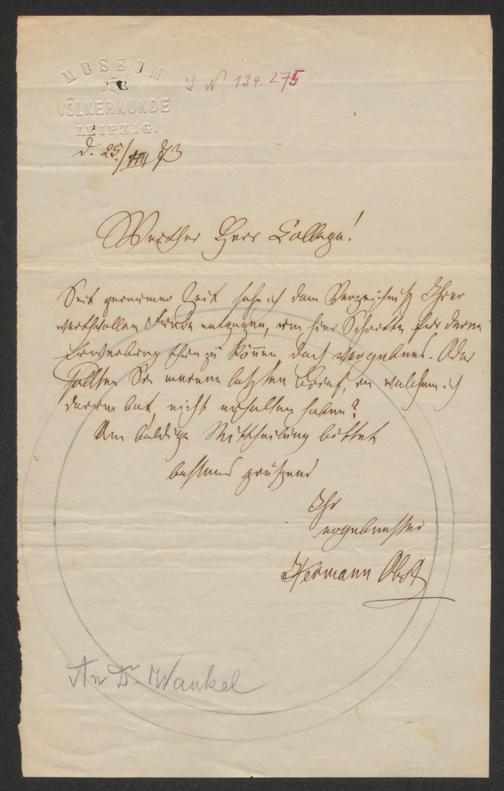 MUSEUM
FÜR
VÖLKERKUNDE
LEIPZIG.
I. N. 134.275
d. 25./VIII 73
Werther Herr College!
Seit geraumer Zeit sehe ich dem Verzeichniß Ihrer
werthvollen Funde entgegen, um hier Schritte für deren
Erwerbung thun zu können, doch vergebens. Oder
sollten Sie meinen letzten Brief, in welchem ich
darum bat, nicht erhalten haben?
Um baldige Mittheilung bittet
bestens grüßend
Ihr
ergebenster
Hermann Obst
An Dr. Wankel